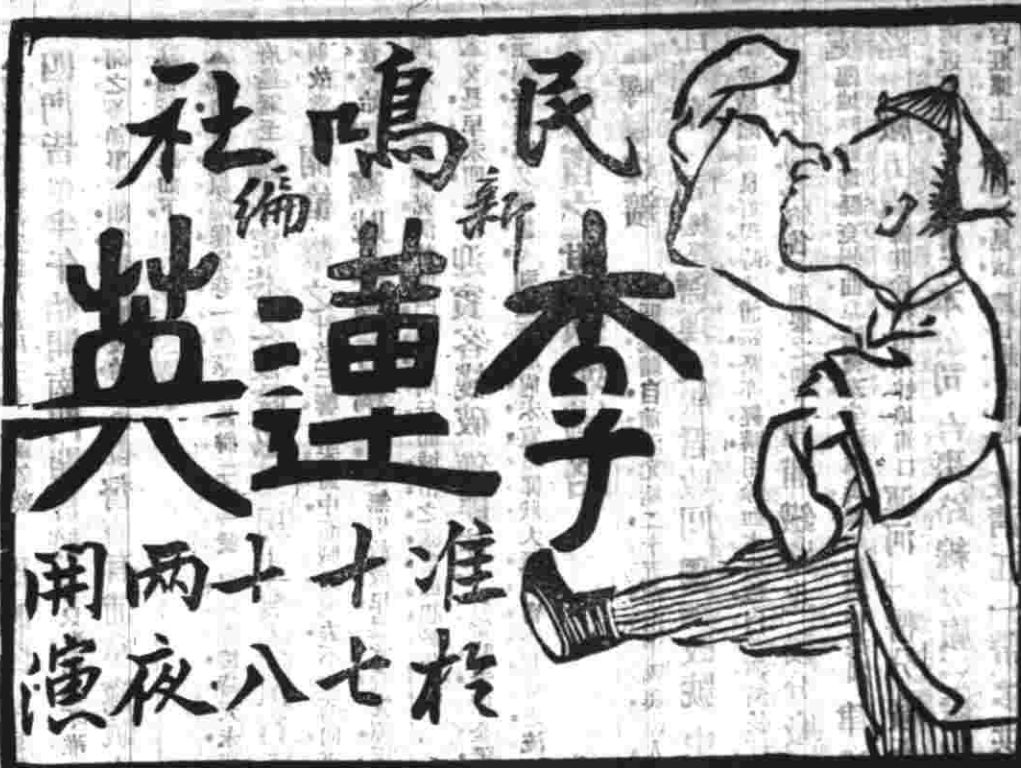 民鳴社
新編
李蓮英
准於
十七
十八
两夜
開演